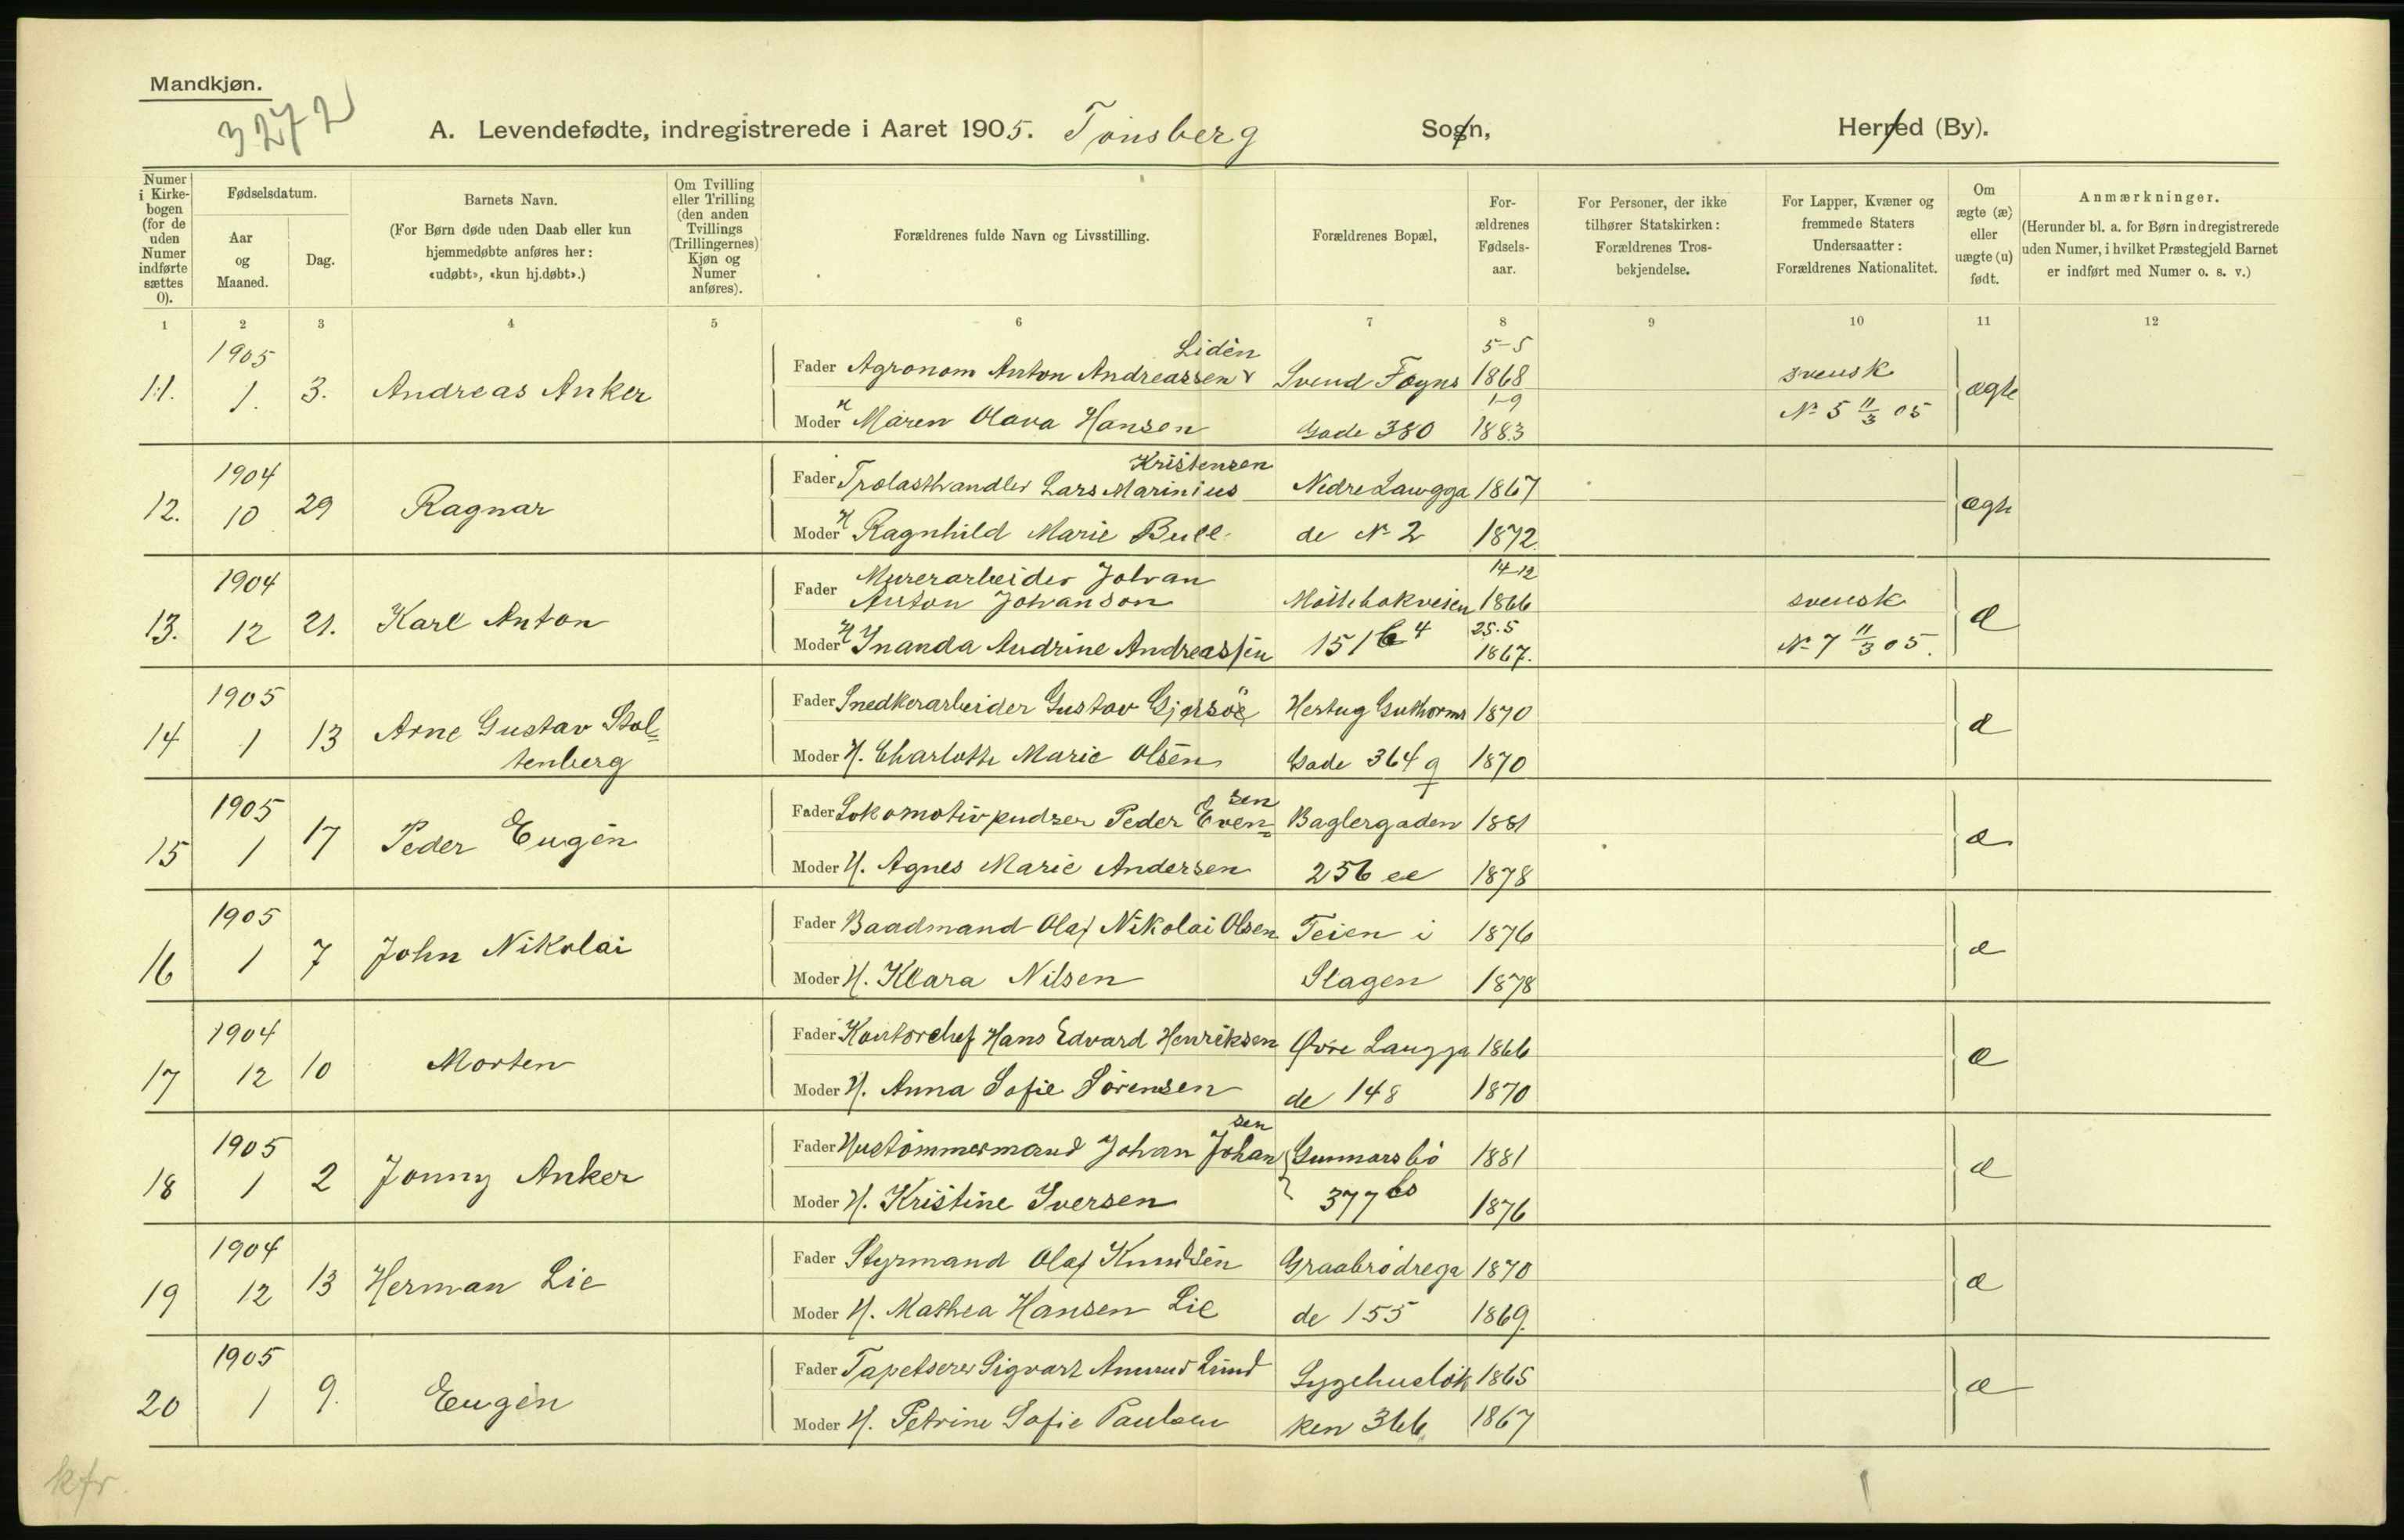 Mandkjøn.
3272
A. Levendefødte, indregistrerede i Aaret 1905. Tönsberg Sogn, Herred (By).
Numer i Kirkebogen (for de uden Numer indførte sættes 0).
Fødselsdatum.
Aar og Maaned.
Dag.
Barnets Navn.
(For Børn døde uden Daab eller kun hjemmedøbte anføres her: «udøbt», «kun hj.døbt».)
Om Tvilling eller Trilling (den anden Tvillings (Trillingernes) Kjøn og Numer anføres).
Forældrenes fulde Navn og Livsstilling.
Forældrenes Bopæl,
Forældrenes Fødselsaar.
For Personer, der ikke tilhører Statskirken: Forældrenes Trosbekjendelse.
For Lapper, Kvæner og fremmede Staters Undersaatter: Forældrenes Nationalitet.
Om ægte (æ) eller uægte (u) født.
Anmærkninger.
(Herunder bl. a. for Børn indregistrerede uden Numer, i hvilket Præstegjeld Barnet er indført med Numer o. s. v.)
1 2 3 4 5 6 7 8 9 10 11 12
1905 Lidén 5-5
11. 1. 3. Andreas Anker Fader Agronom Anton Andreassen Svend Foyns 1868 svensk ægte
Moder H Maren Olava Hansen Gade 380 1-9 1883 No 5 11/3 05
1904 Kristensen
12. 10 29 Ragnar Fader Trælasthandler Lars Marinius Nedre Langga 1867 ægte
Moder H Ragnhild Marie Bull de No 2 1872.
1904 Fader Murerarbeider Johan 14-12
13. 12 21. Karl Anton Anton Johanson Möllebakveien 1866 svensk æ
Moder H Inanda Audrine Andreassen 151 b 4 25.5 1867. No 7 11/3 05.
1905 Fader Snedkerarbeider Gustav Hertug Guthorms 1870
14 1 13 Arne Gustav Stol= æ
tenberg Moder H. Charlotte Marie Olsen Gade 364 g 1870
1905 sen
15 1 17 Peder Eugén Fader Lokomotivpudser Peder Even= Baglergaden 1881 æ
Moder H. Agnes Marie Andersen 256 ee 1878
1905 Fader Baadmand Olaf Nikolai Olsen Teien i 1876
16 1 7 John Nikolai æ
Moder H. Klara Nilsen Slagen 1878
1904 Fader Kontorchef Hans Edvard Henriksen Øvre Langga 1866
17 12 10 Morten æ
Moder H. Anna Sofie Sörensen de 148 1870
1905 sen
18 1 2 Jonny Anker Fader Hustömmermand Johan Johan Gunnarsbö 1881 æ
Moder H. Kristine Iversen 377 1876
1904 Fader Styrmand Olaf Knudsen Graabrödrega 1870
19 12 13 Herman Lie æ
Moder H. Mathea Hansen Lie de 155 1869.
1905 Fader Tapetserer Sigvart Amund Lund Sygehuslök 1865
20 1 9. Eugén æ
Moder H. Petrine Sofie Paulsen ken 366. 1867
kfr.